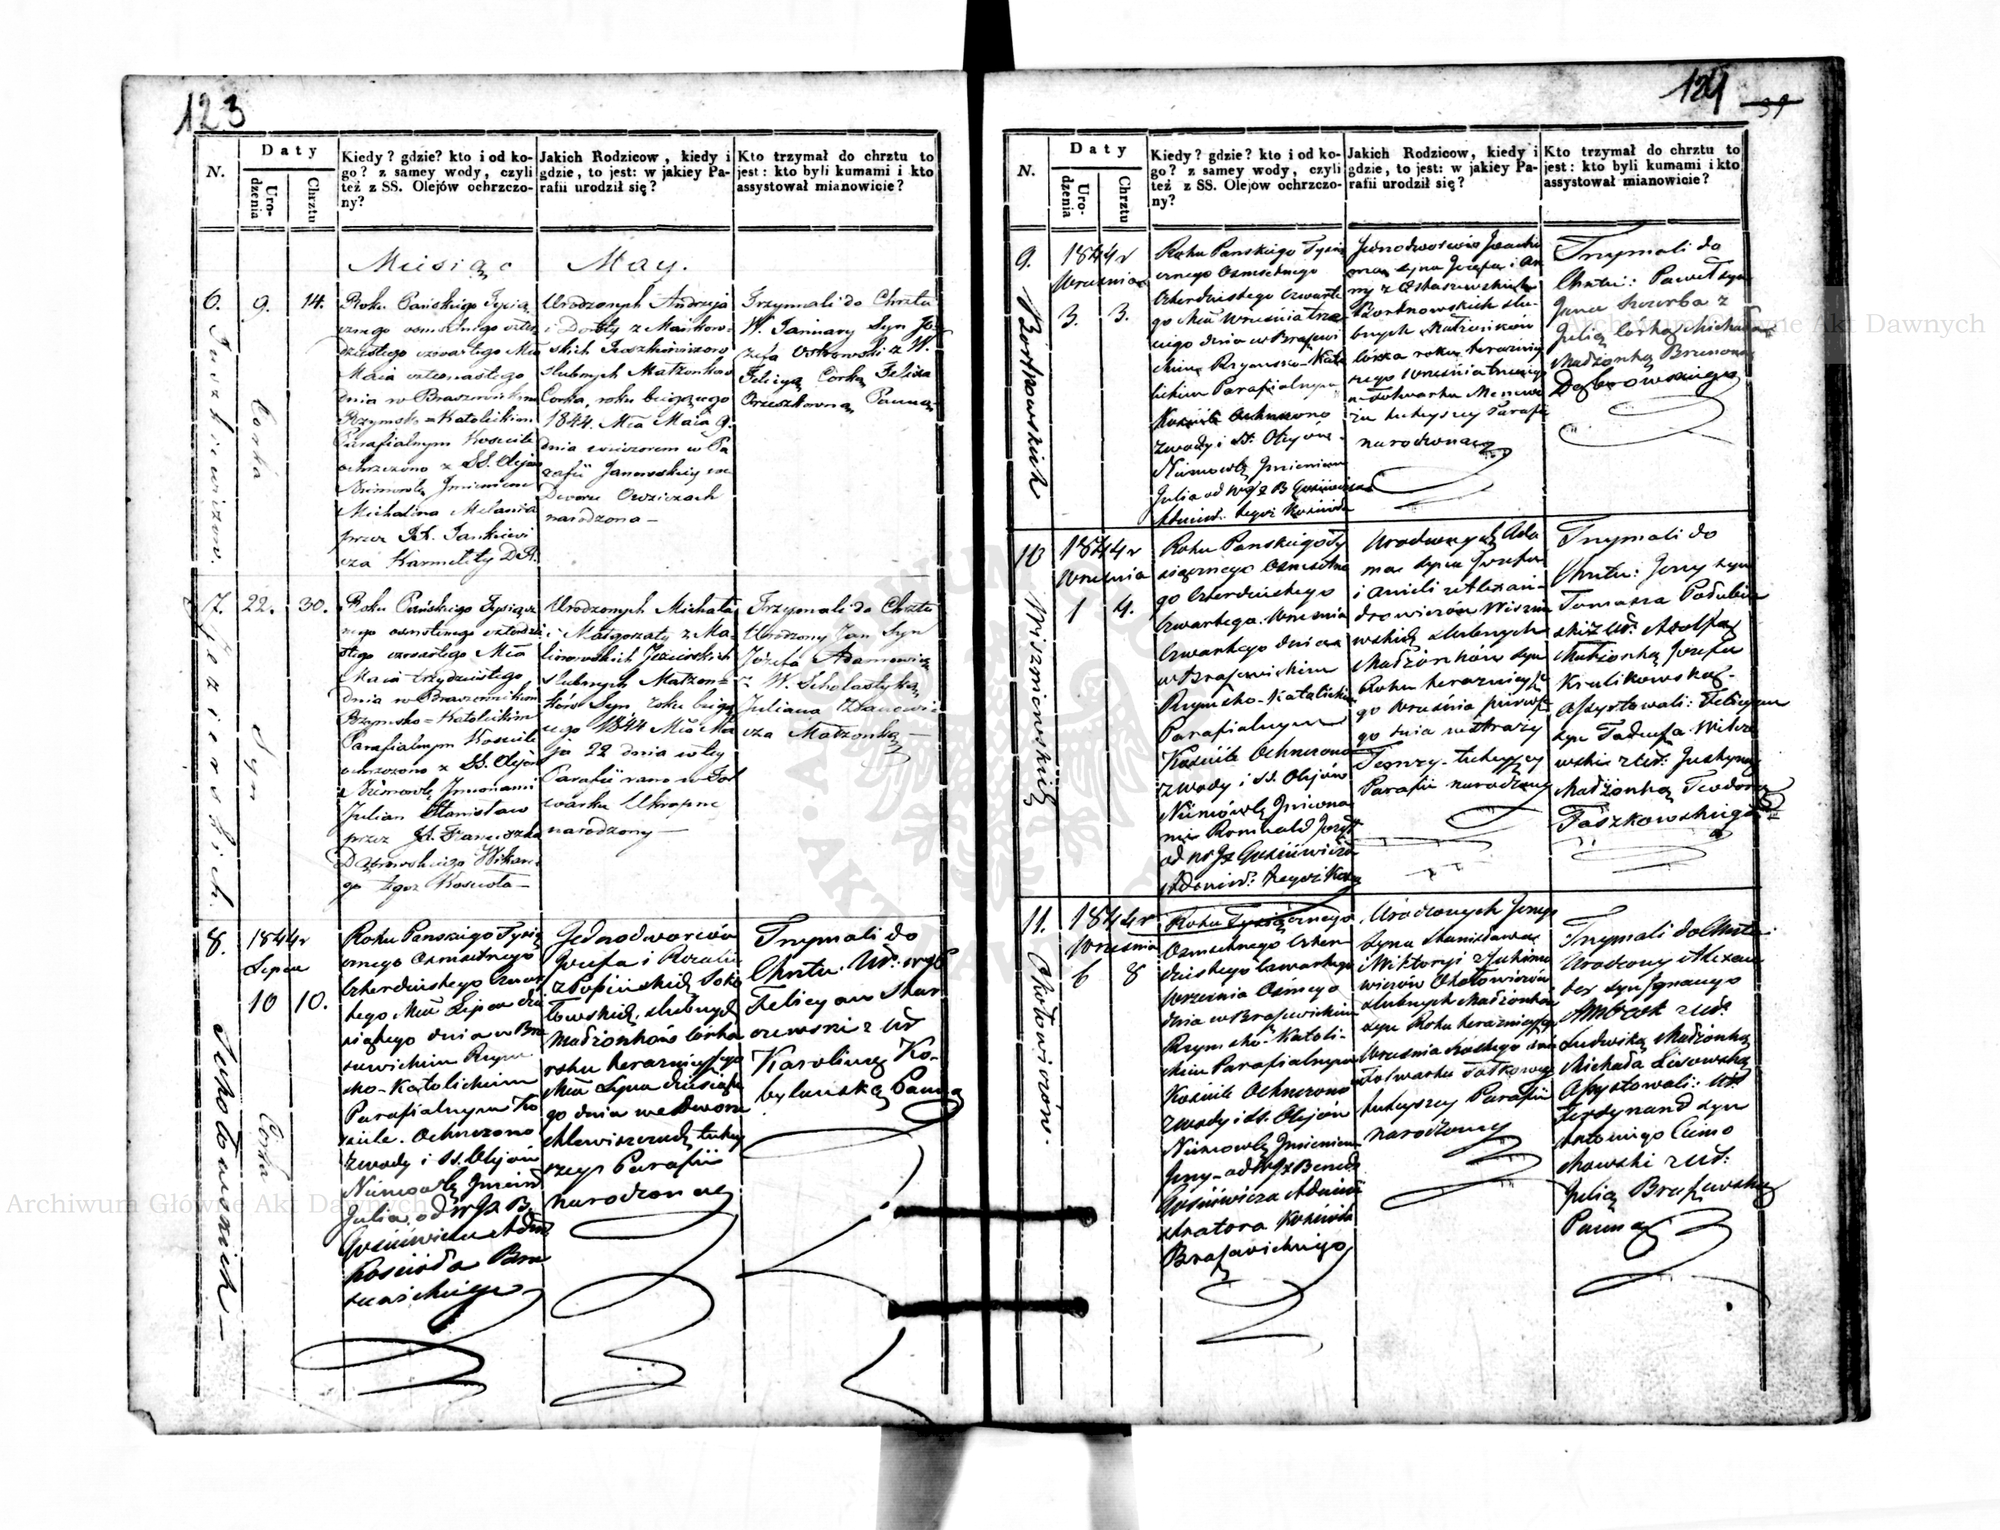 123
N.
Daty
Urodzenia
Chrztu
Kiedy? gdzie? kto i od kogo? z samey wody, czyli też z SS. Olejów ochrzczony?
Jakich Rodzicow, kiedy i gdzie, to jest: w jakiey Parafii urodził się?
Kto trzymał do chrztu to jest: kto byli kumami i kto assystował mianowicie?
Miesiąc May.
6.
9.
14.
Córka
Roku Pańskiego Tysią
cznego osmsetnego czter
dziestego czwartego Mca
Maia czternastego
dnia w Braszewickim
Rzymsko=Katolickim
Parafialnym Kosciele
ochrzczono z SS. Olejów
Niemowlę Jmieniem
Michalina Melania
przez JX. Jankiewi
cza Karmelity
Urodzonych Andrzeja
i Doroty z Mańkow
skich
slubnych Małżonkow
Corka, roku bieżącego
1844. Mca Maia 9.
dnia wieczorem w Pa
rafii Janowskiey we
Dworze
narodzona—
Trzymali do Chrztu
W. January Syn Jó
zefa Ostrowski z W.
Felicyą Corką Felixa
Orzeszkowną Panną
7.
22.
30.
Syn
Jezierskich.
Roku Pańskiego Tysiącz
nego osmsetnego czterdzie
stego czwartego Mca
Maia trzydziestego
dnia w Braszewickim
Rzymsko=Katolickim
Parafialnym Kosciele
ochrzczono z SS. Olejów
Niemowlę Jmionami
Julian Stanisław
przez JX. Franciszka
Dąbrowskiego Wikare
go tegoż Koscioła—
Urodzonych Michała
i Małgorzaty z Ma
Jezierskich
slubnych Małżon=
ków Syn, roku bieżą
cego 1844 Mca Ma
ja 22 dnia w tey
Parafii rano w Fol
warku Ukropne
narodzony—
Trzymali do Chrztu
Urodzony Jan Syn
Józefa Adamowicz
z W. Scholastyką
Juliana
cza Małżonką—
8.
1844 r
Lipca
10
10.
Córka
Roku Panskiego Tysią
cznego Osmsetnego
Czterdziestego Czwar
tego Mca Lipca dzie
siątego dnia w Bra
sewickim Rzym
sko-Katolickim
Parafialnym Ko
sciele. Ochrzczono
z wody i SS. Olejów
Niemowlę Jmieniem
Julia od W JX B.
Gosiewicza Adm
Kościoła Bra
sewickiego
Jednodworców
Jozefa i Rozalii
Soko
łowskich, slubnych
Małżonków córka
roku terazniejszego
Mca Lipca dziesiąte
go dnia we Dworze
Chlewiszczach tutey
szey Parafii
narodzona
Trzymali do
Chrztu. Ur:
Felicyan Skar
czewski z Ur
Karoliną Ko-
bylińską Panną
124
39
N.
Daty
Urodzenia
Chrztu
Kiedy? gdzie? kto i od kogo? z samey wody, czyli też z SS. Olejów ochrzczony?
Jakich Rodzicow, kiedy i gdzie, to jest: w jakiey Parafii urodził się?
Kto trzymał do chrztu to jest: kto byli kumami i kto assystował mianowicie?
9.
1844 r
Września
3.
3.
Bortnowskich
Roku Panskiego Tysią
cznego Osmsetnego
Czterdziestego Czwarte
go Mca Września trze
ciego dnia w Brasewi
ckim Rzymsko-Kato
lickim Parafialnym
Kosciele Ochrzczono
z wody i SS. Olejów
Niemowlę Jmieniem
Julia od W JX B Gosiewicza
Administ: tegoż Kościoła
Jednodworców Joachi
ma syna Jozefa i An
ny z Ostaszewskich
Bortnowskich slu
bnych Małżonków
córka roku terazniey
szego Września trzeciego
w Folwarku
tuteyszey Parafii
narodzona
Trzymali do
Chrztu: Paweł syn
Jana Szczerba z
Julią córką Michała
Małżonką Brunona
Dąbrowskiego
10
1844 r
Września
1
4.
Wiszniewskich
Roku Panskiego Ty
siącznego Osmsetne
go Czterdziestego
Czwartego Września
Czwartego dnia
w Brasewickim
Rzymsko-Katolickim
Parafialnym
Kosciele Ochrzczono
z wody i SS. Olejów
Niemowlę Jmiona
mi Romuald Jozef
od W JX Gosiewicza
Administ: tegoż Kościoła
Urodzonych Ada
ma syna Jozefa
i Anieli z Alexan
drowiczów Wiszn
ewskich slubnych
Małżonków syn
Roku terazniejsze
go Września pierwsze
go dnia w Straży
tuteyszey
Parafii narodzony
Trzymali do
Chrztu: Jerzy syn
Tomasza Połubiń
ski z Ur: Adolfą
Małżonką Jozefa
Krulikowskiego
Assystowali: Felicyan
syn Tadeusza
z Ur: Justyną
Małżonką Teodora
Taszkowskiego
11.
1844 r
Września
6
8
Chotowiczów.
Roku Tysiącznego
Osmsetnego Czter
dziestego Czwartego
Września Osmego
dnia w Brasewickim
Rzymsko Katoli-
ckim Parafialnym
Kosciele Ochrzczono
z wody i SS. Olejów
Niemowlę Jmieniem
Jerzy-od W JX Bened
Gosiewicza Admini
stratora Kościoła
Brasewickiego
Urodzonych Jerzego
syna Stanisława
i Wiktoryi
Chotowiczów
slubnych Małżonków
syn Roku terazniejszego
Września szóstego dnia
w Folwarku
tuteyszey Parafii
narodzony
Trzymali do Chrztu:
Urodzony Alexan
der syn Jgnacego
z Ur:
Ludwiką Małżonką
Michała Lisowską
Assystowali: Ur
Ferdynand syn
Antoniego
z Ur:
Julią
Panną
Archiwum Główne Akt Dawnych
Archiwum Główne Akt Dawnych